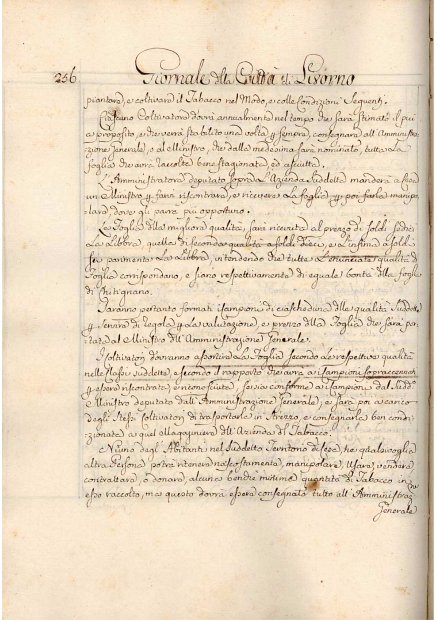 256 Giornale della Città di Livorno
piantare, e coltivare il Tabacco nel Modo, e colle Condizioni Sequenti.
Ciascuno Coltivatore dovrà annualmente nel tempo che sarà stimato il più
a proposito, e che verrà stabilito una volta p sempre, consegnare all' Amministra-
zione Generale, o al Ministro, che dalla medesima sarà nominato, tutta la
foglia che avrà raccolta bene stagionata, ed asciutta.
L'Amministratore deputato sopra l'Azienda suddetta manderà a
un Ministro p farvi riscontrare, e ricevere la foglia p poi farla manipo-
lare, dove gli parrà più opportuno.
La foglia della migliore qualità, sarà ricevuta al prezzo di soldi sedici
la Libbra, quella di seconda qualità a soldi dieci, e l'infima a soldi
sei parimente la Libbra, intendendo che tutte le enunciate qualità di
foglia corrispondano, e siano respettivamente di eguale bontà alla foglia
di Chitignano.
Saranno pertanto formati i campioni di ciascheduna delle qualità suddette
p servire di regola p la valutazione, e prezzo della foglia che sarà por-
tata al Ministro dell' Amministrazione Generale.
I Coltivatori dovranno asportare la foglia secondo le respettive qualità
nelle classi suddette, e secondo il rapporto che avrà ai campioni sopraccennati
p essere riscontrata, e riconosciuta, se sia conforme ai campioni dal sudd.
Ministro deputato dall' Amministrazione Generale, e sarà poi a carico
degli stessi Coltivatori di trasportarla in Arezzo, e consegnarla ben condi-
zionata a quel Magazziniere dell' Azienda del Tabacco.
Niuno degli Abitanti nel suddetto Territorio di Sesa, nè qualsivoglia
altra Persona potrà ritenere nascostamente, manipolare, usare, vendere
contrattare, o donare, alcuna benchè minima quantità di Tabacco in
esso raccolto, ma questo dovrà essere consegnato tutto all' Amministraz.
Generale